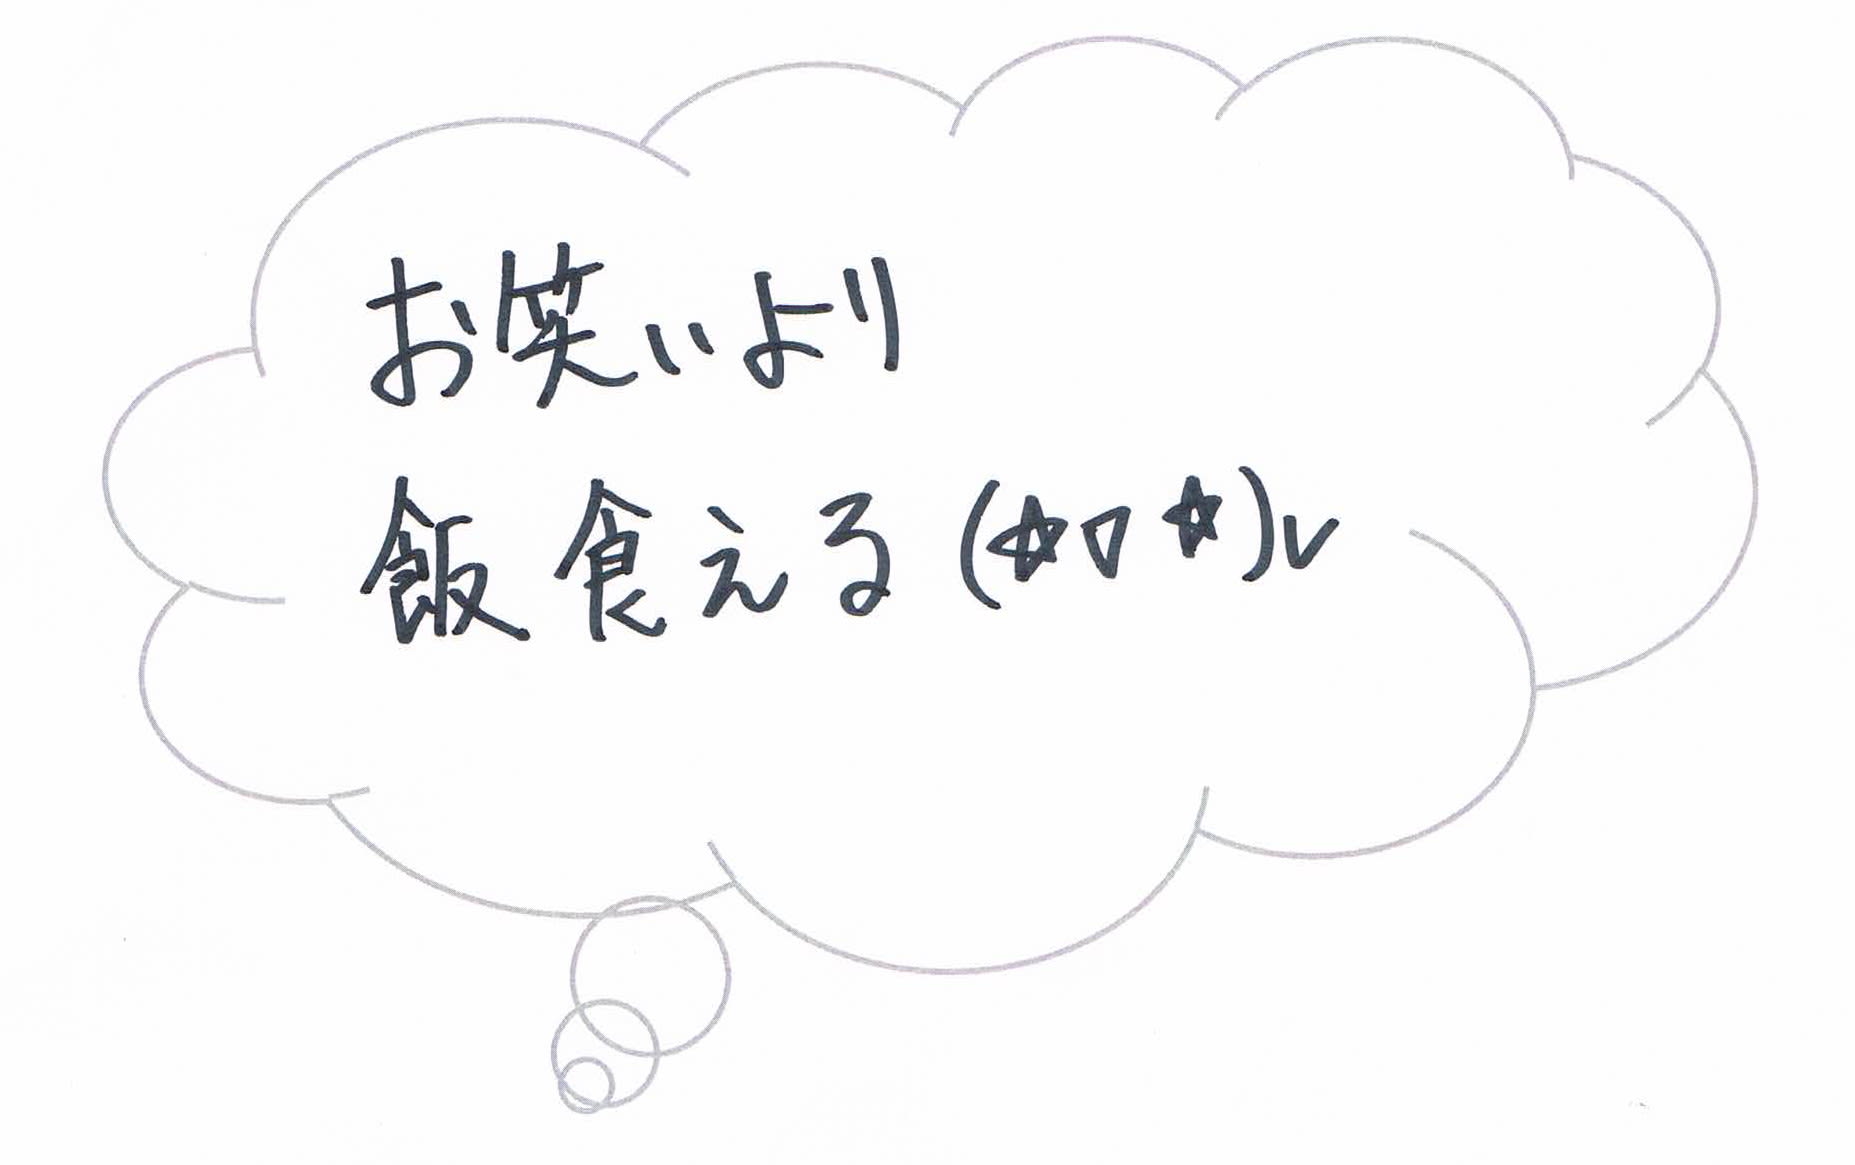 お笑いより
飯食える(☆▽☆)v